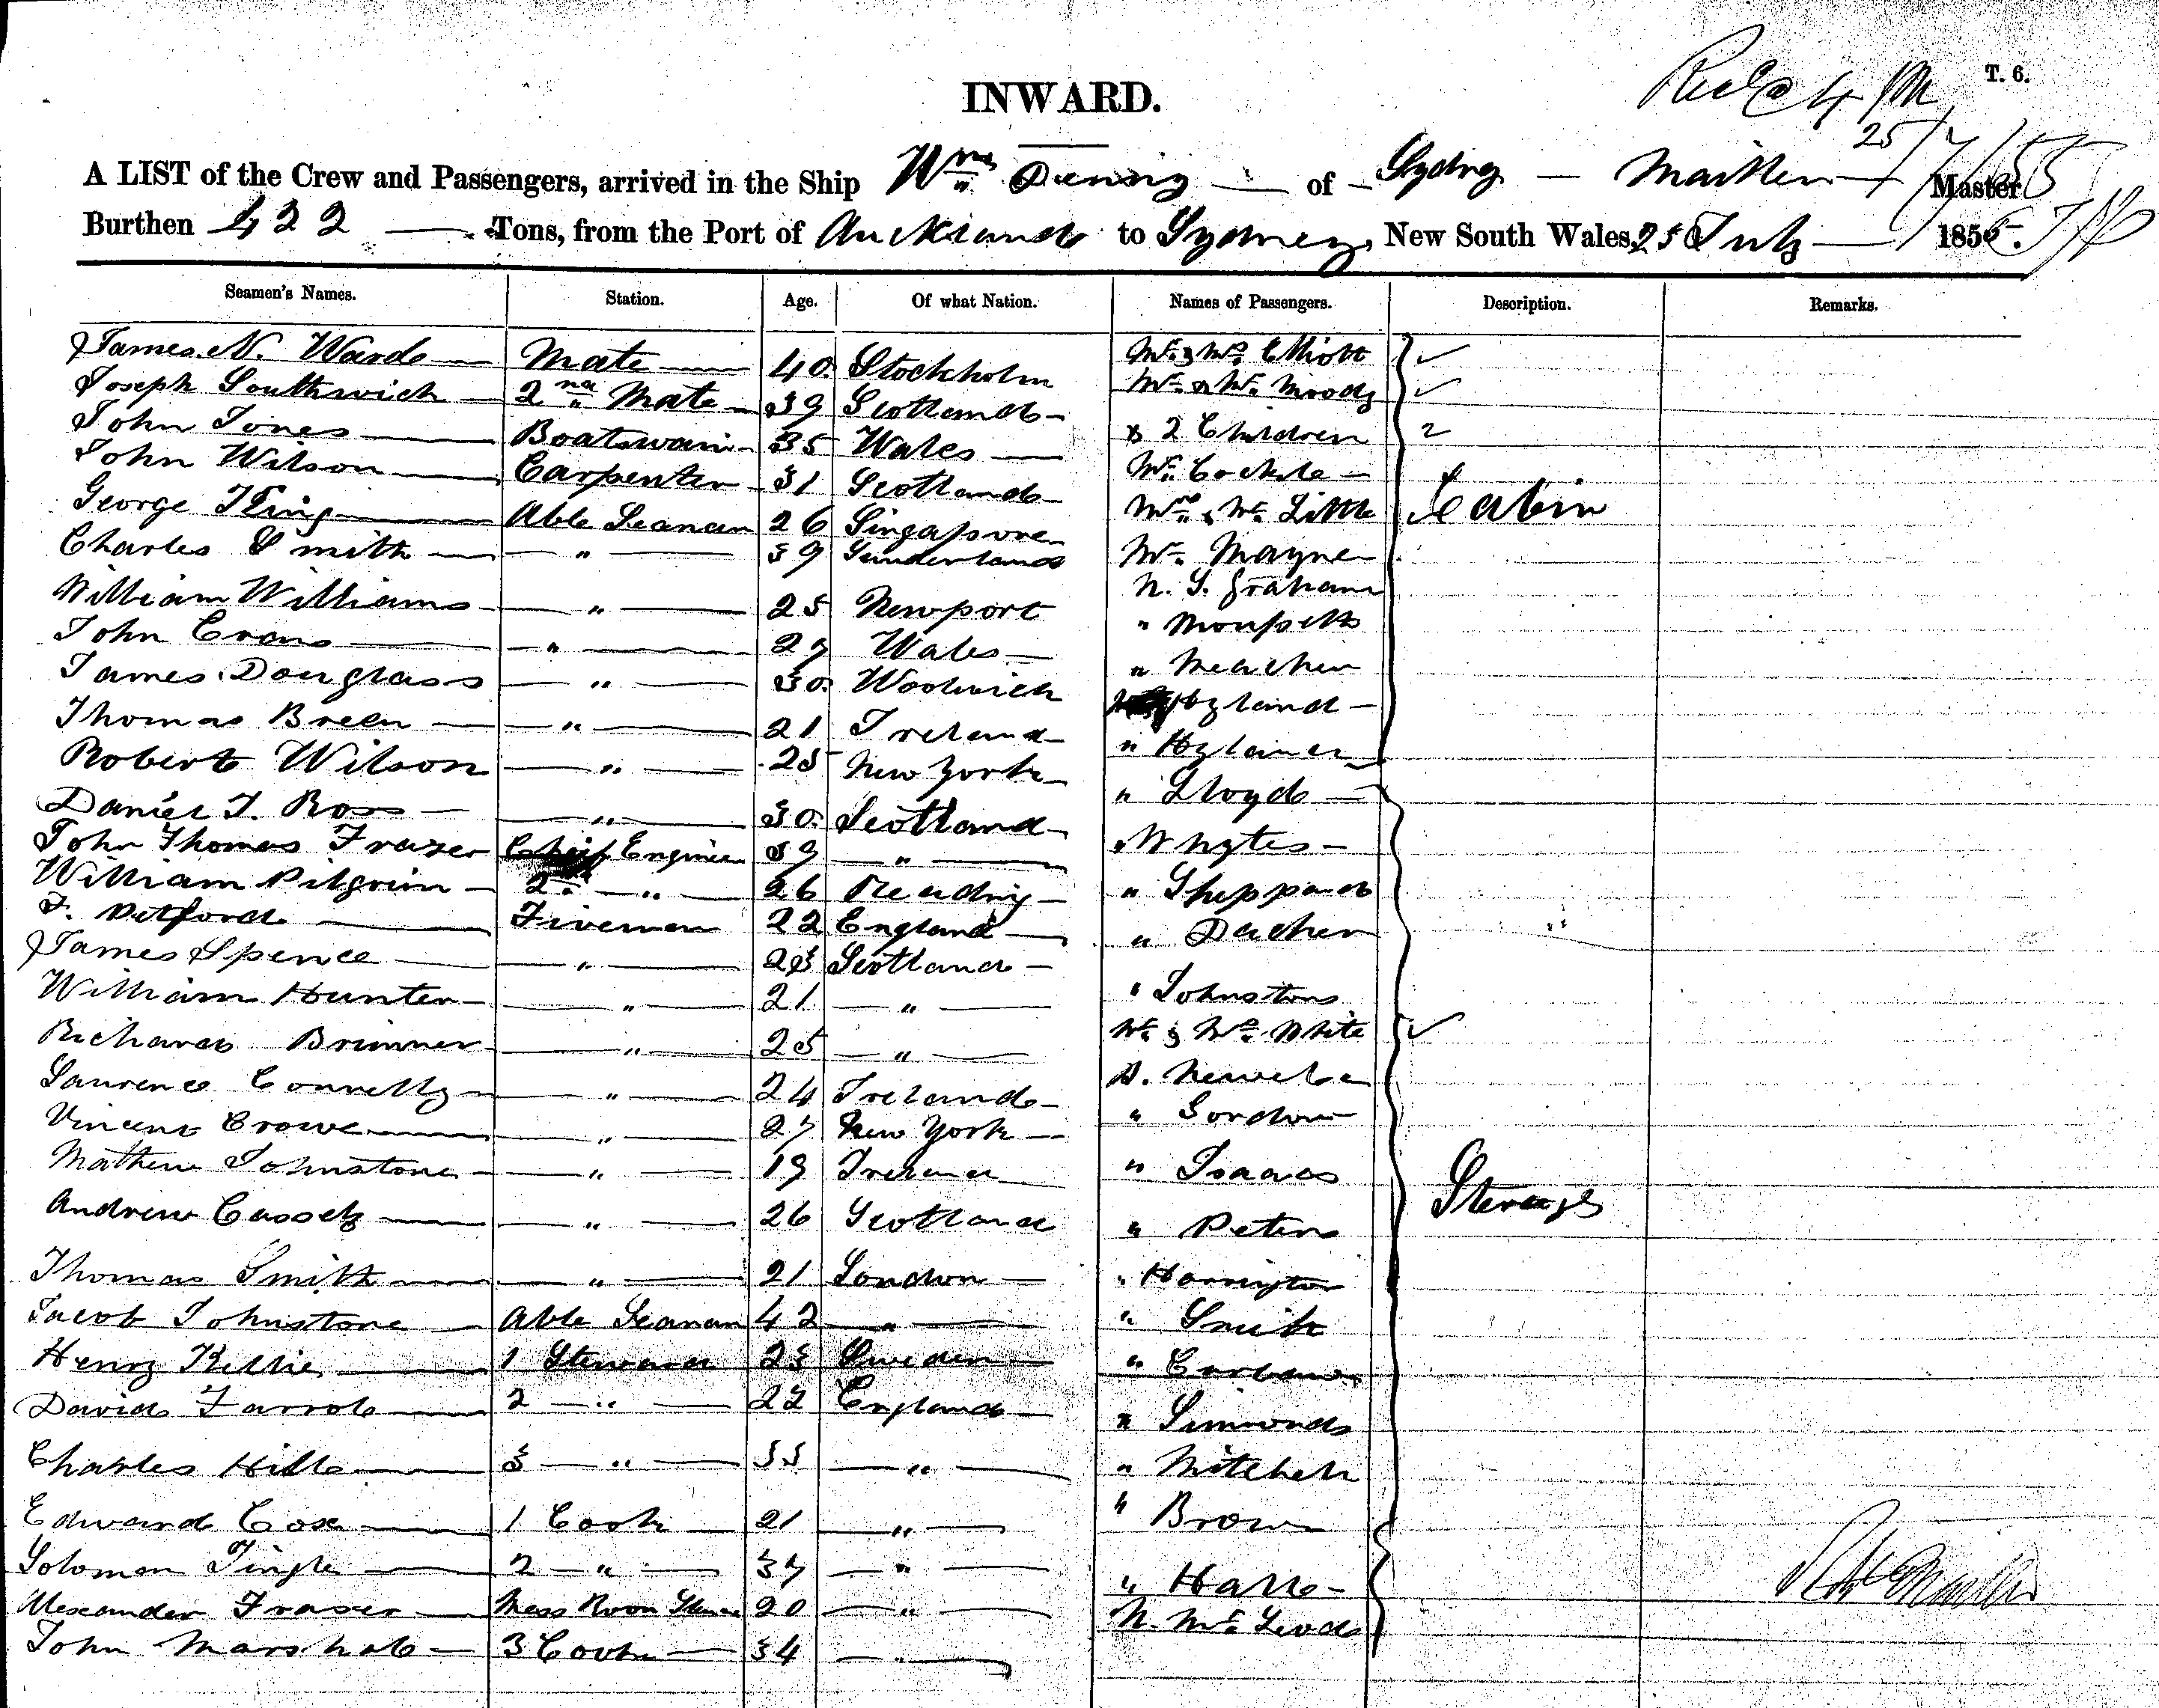 T. 6.
INWARD.
Recd @ 4 PM
25/7/55
A LIST of the Crew and Passengers, arrived in the Ship Wm Denny of Sydney — Mailler Master
Burthen 422 Tons, from the Port of Auckland to Sydney, New South Wales, 25 July 1855.
Seamen's Names. Station. Age. Of what Nation. Names of Passengers. Description. Remarks.
James N. Ward Mate 40 Stockholm Mr & Mrs Elliott
Joseph Southwick 2nd Mate 39 Scotland Mr & Mrs Moody
John Jones Boatswain 35 Wales & 2 Children 2
John Wilson Carpenter 31 Scotland Mr Cockle
George King Able Seaman 26 Singapore Mrs & Mr Little Cabin
Charles Smith " 39 Sunderland Mr. Mayne
William Williams " 25 Newport N. S. Graham
John Evans " 27 Wales "
James Douglass " 30 Woolwich " Meachen
Thomas Breen " 21 Ireland Hyland
Robert Wilson " 25 New York "
Daniel J. Ross " 30 Scotland " Lloyd
John Thomas Fraser Chief Engineer 39 " " Whytes
William Pilgrim 2 " 26 Reading " Sheppard
F. Petford Fireman 22 England " Dacher
James Spence " 23 Scotland
William Hunter " 21 " " Johnstons
Richard Brimner " 25 " Mr & Mrs White
Laurence Connelly " 24 Ireland
Vincent Crowe " 27 New York " Gordon
Mathew Johnstone " 19 Ireland " Isaacs
Andrew Cassely " 26 Scotland " Peters Steerage
Thomas Smith " 21 London " Harrington
Jacob Johnstone Able Seaman 42 " " Smith
Henry Kellie 1 Steward 23 Sweden "
David Farrob 2 " 22 England " Simmonds
Charles Hill 3 " 33 " " Mitchell
Edward Cox 1 Cook 21 " " Brown
Solomon Tingle 2 " 37 " " Hall
Alexander Fraser Mess Room Steward 20 " N. McLeod
John Marshall 3 Cook 34 "